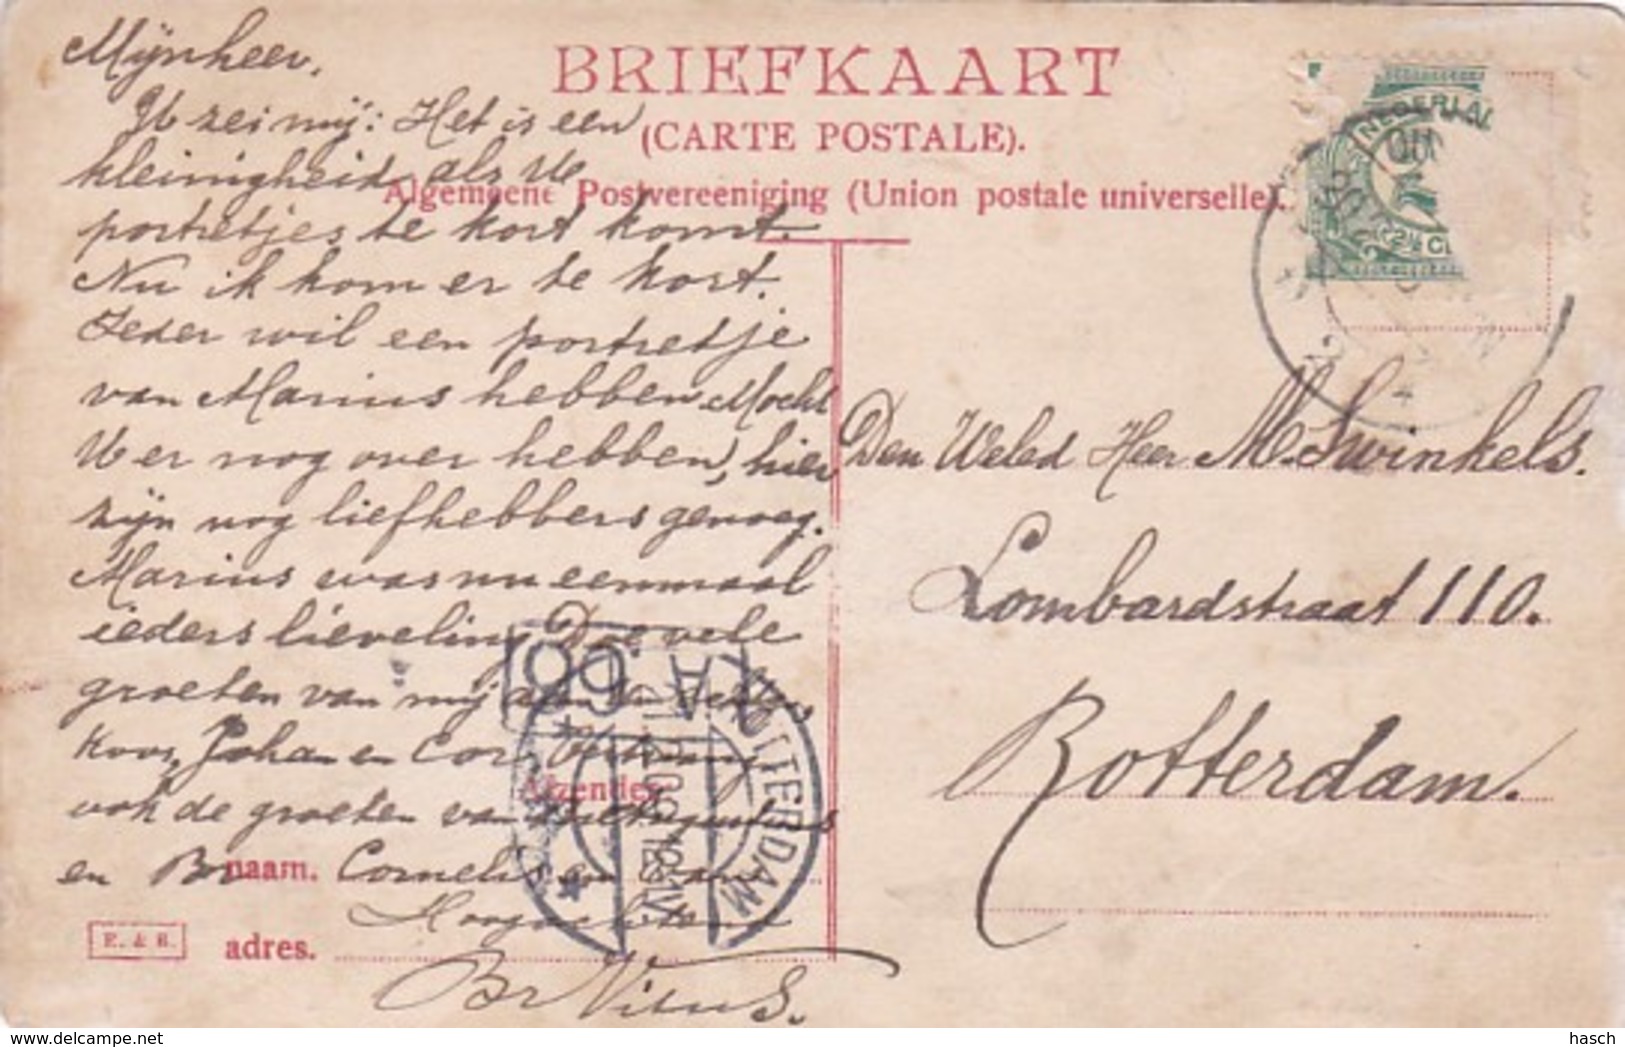 BRIEFKAART
(CARTE POSTALE).
Algemeene Postvereeniging (Union postale universelle).
NEDERLAN
2½ C
Mijnheer,
U zei mij: Het is een
kleinigheid als U
portretjes te kort komt.
Nu ik kom er te kort.
Ieder wil een portretje
van Marius hebben. Mocht
U er nog over hebben, hier
zijn nog liefhebbers genoeg.
Marius was nu eenmaal
ieders lieveling. Doe vele
groeten van mij aan
Koos, Johan en Cor.
ook de groeten van
en Br Cornelis en
Br Vitus S.
Afzender
naam.
adres.
E. & B.
Den Weled Heer M. Swinkels.
Lombardstraat 110.
Rotterdam.
ROTTERDAM
A 60
hasch